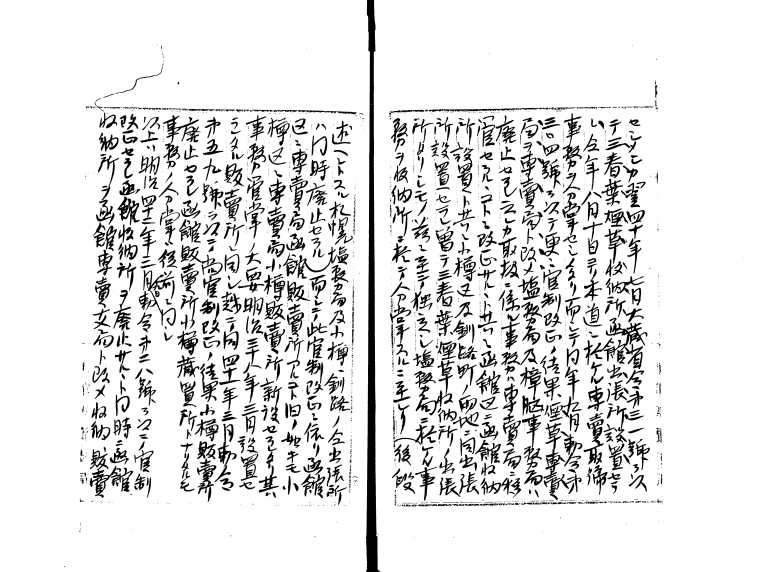 セシメシカ翌四十年七月大蔵省令第三一號ヲ以
テ三春葉煙草収納所函館出張所設置セラ
レ今年八月十日ヨリ本道ニ於ケル専賣取締
事務ヲ分掌セシメタリ而シテ同年九月勅令第
三〇四號ヲ以テ更ニ官制改正ノ結果煙草専賣
局ヲ専賣局ト改メ塩務局及樟脳事務局ハ
廃止セラレ之カ取扱ニ係ル事務ハ専賣局ニ移
管セラルヽコトニ改正サルヽト共ニ函館区ニ函館収納
所ノ設置ト共ニ小樽区及釧路町ノ両地ニ同出張
所ノ設置セラレ曽テ三春葉煙草収納所ノ出張
所タリシモノ茲ニ至テ独立シ塩務局ニ於ケル事
務ヲ収納所ニ於テ分掌スルニ至レリ（後段
述ヘントスル札幌塩務局及小樽、釧路ノ仝出張所
ハ同時廃止セラル）而シテ此官制改正ニ依リ函館
区ニ専賣局函館販賣所アルコト旧ノ如キモ小
樽区ニ専賣局小樽販賣所新設セラレタリ其
事務管掌ノ大要明治三十八年三月設置セ
ラレタル販賣所ト同シ越テ同四十一年三月勅令
第五九號ヲ以テ尚官制改正ノ結果小樽販賣所
廃止セラレ函館販賣所小樽蔵置所トナリタルモ
事務ノ分掌ハ従前ニ同シ
以上ハ明治四十二年三月勅令第二八號ヲ以テ官制
改正セラレ函館収納所ヲ廃止サルヽト同時ニ函館
収納所ヲ函館専賣支局ト改メ収納販賣